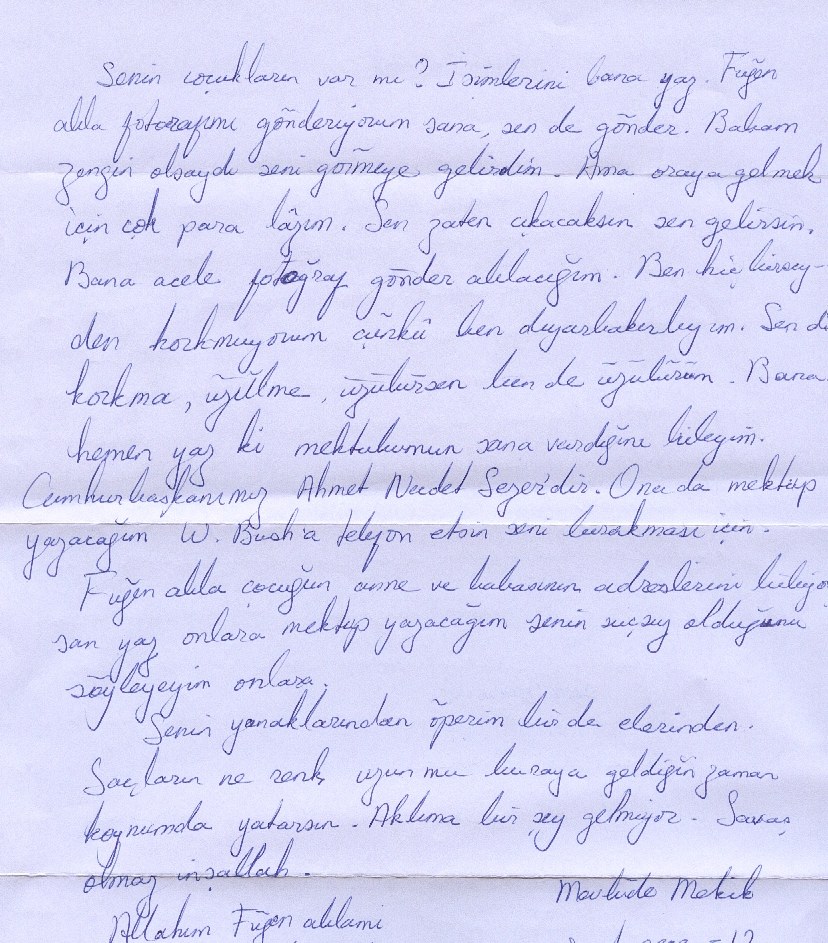 Senin çocukların var mı? İsimlerini bana yaz. Fügen
abla fotorafımı gönderiyorum sana, sen de gönder. Babam
zengin olsaydı seni görmeye gelirdim. Ama oraya gelmek
için çok para lâzım. Sen zaten çıkacaksın sen gelirsin.
Bana acele fotoğraf gönder ablacığım. Ben hiç birşey-
den korkmuyorum çünkü ben diyarbakırlıyım. Sen d
korkma, üzülme, üzülürsen ben de üzülürüm. Bana
hemen yaz ki mektubumun sana vardığını bileyim.
Cumhurbaşkanımız Ahmet Necdet Sezer'dir. Ona da mektup
yazacağım W. Bush'a telefon etsin seni bırakması için.
Fügen abla çocuğun anne ve babasının adreslerini biliyo
san yaz onlara mektup yazacağım senin suçsuz olduğunu
söyleyeyim onlara.
Senin yanaklarından öperim bir de elerinden.
Saçların ne renk uzun mu buraya geldiğin zaman
koynumda yatarsın. Aklıma bir şey gelmiyor. Savaş
olmaz inşallah.
Mevlüde
Allahım Fügen ablamı